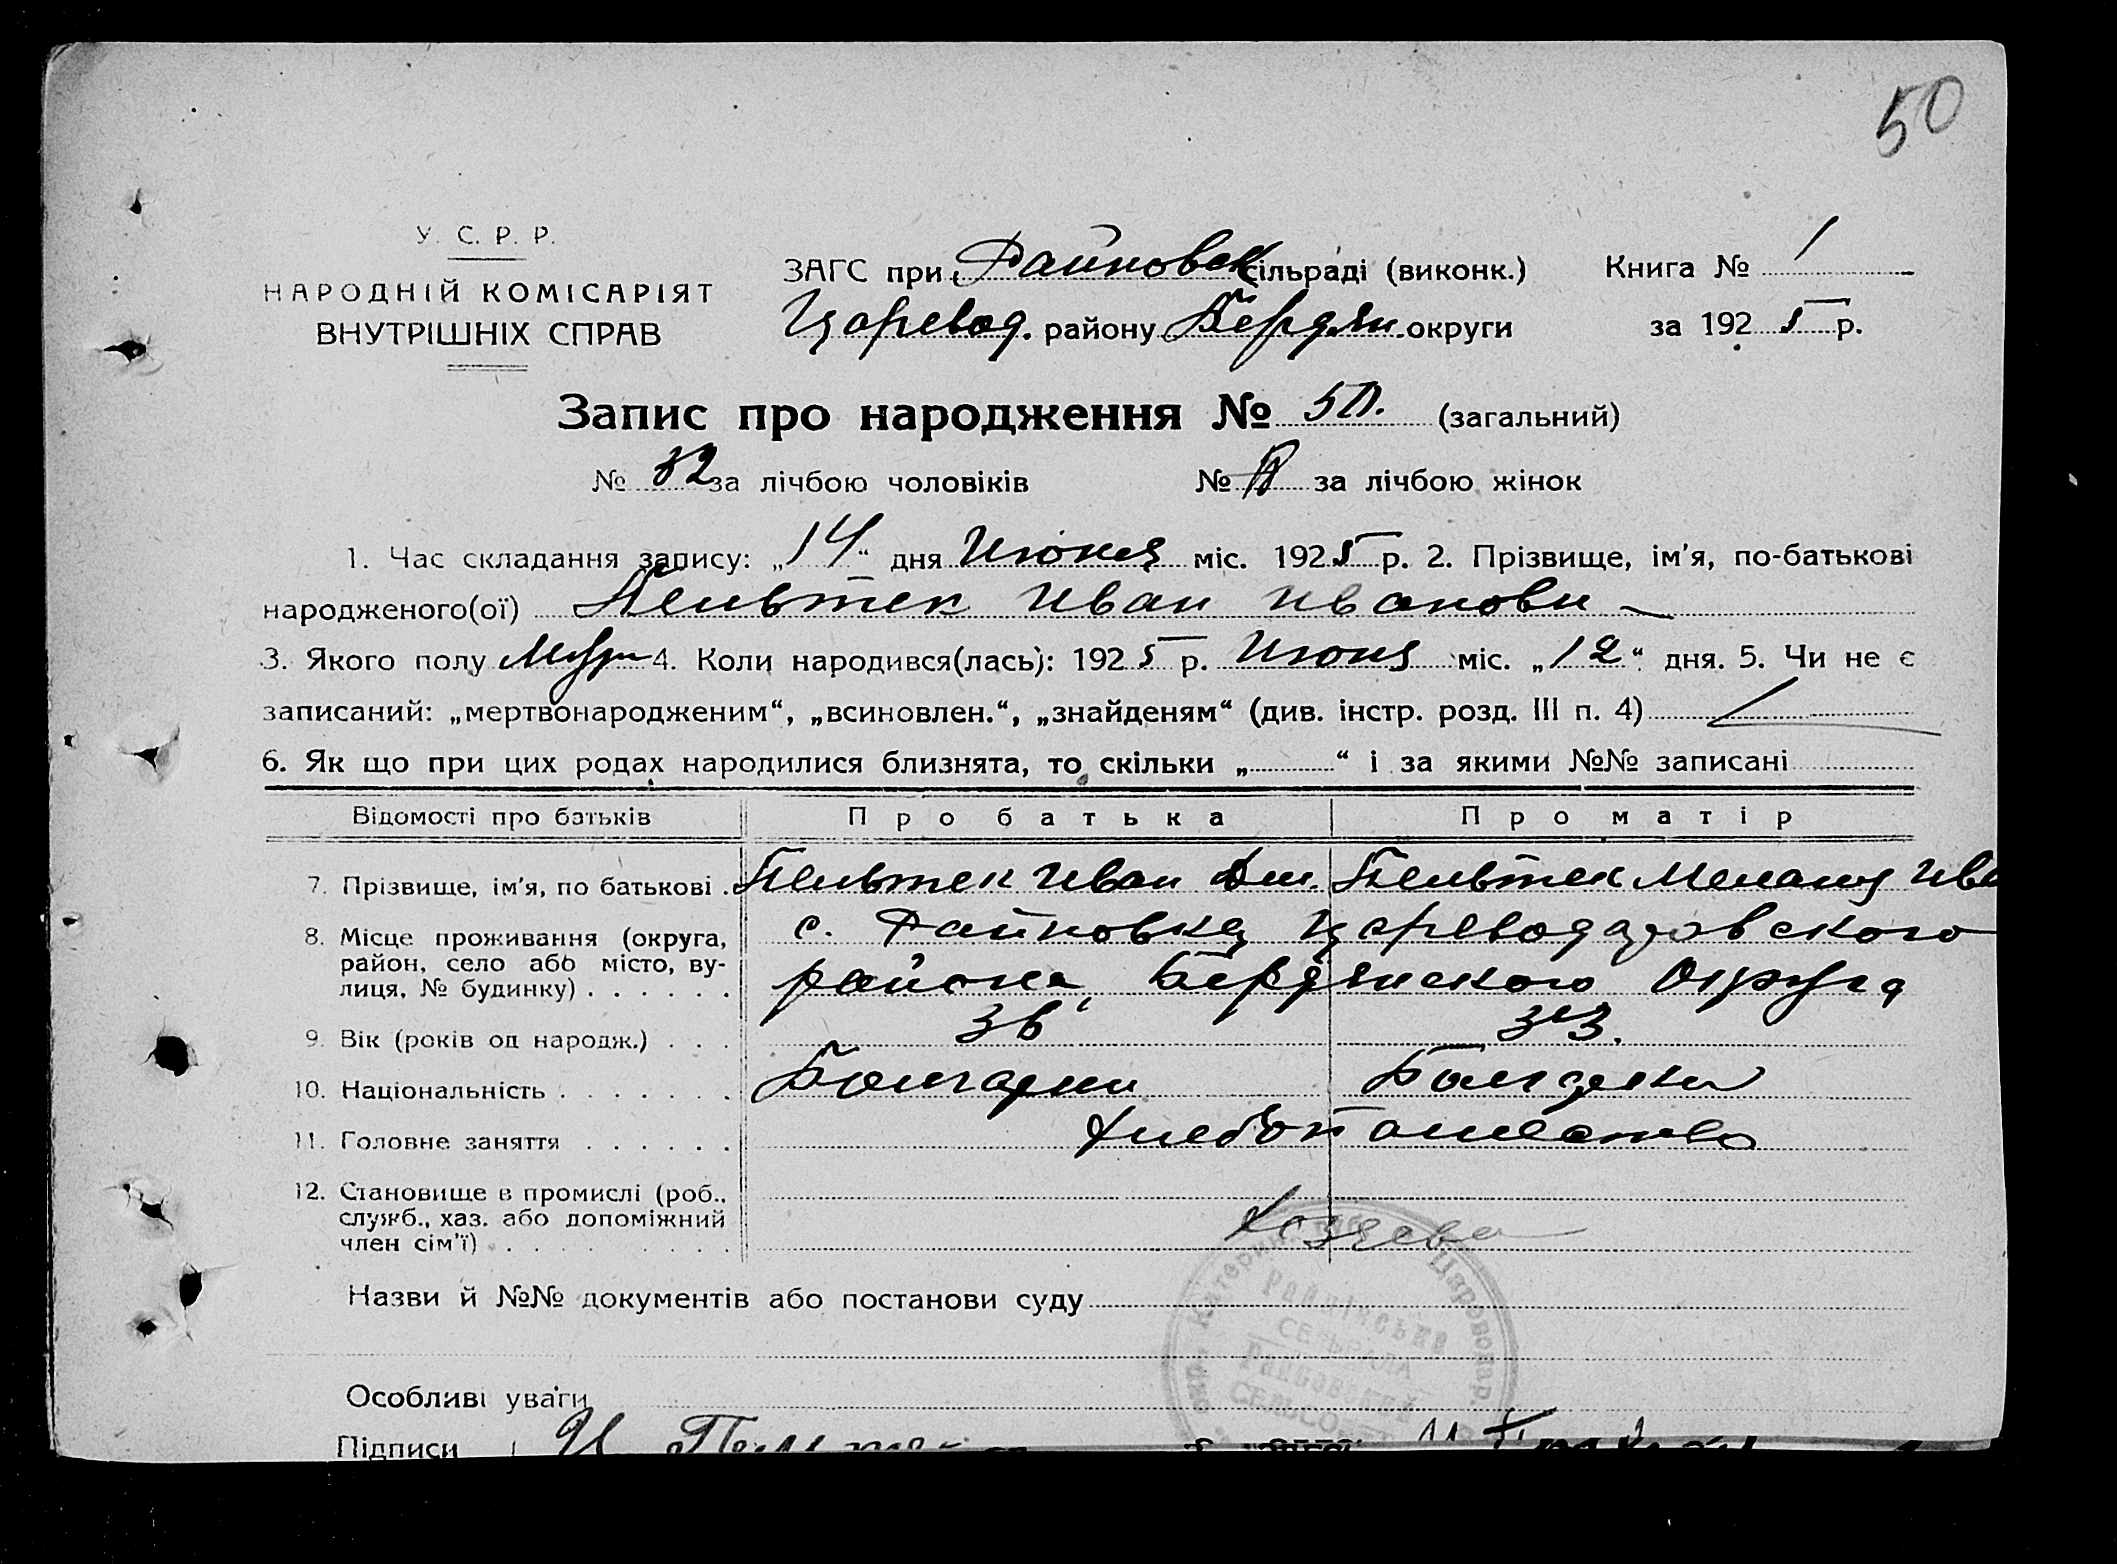 50
У. С. Р. Р.
НАРОДНІЙ КОМІСАРІЯТ
ВНУТРІШНІХ СПРАВ
ЗАГС при Райновск сільраді (виконк.) Книга № 1
Царевод. району Бердян. округи за 1925 р.
Запис про народження № 50. (загальний)
№ 32 за лічбою чоловіків № за лічбою жінок
1. Час складання запису: „14“ дня Июня міс. 1925 р. 2. Прізвище, ім’я, по-батькові
народженого(ої) Пельтек Иван Иванови
3. Якого полу Муж 4. Коли народився(лась): 1925 р. Июня міс. „12“ дня. 5. Чи не є
записаний: „мертвонародженим“, „всиновлен.“, „знайденям“ (див. інстр. розд. III п. 4)
6. Як що при цих родах народилися близнята, то скільки „ “ і за якими №№ записані
Відомості про батьків Про батька Про матір
7. Прізвище, ім’я, по батькові . Пельтек Иван Дм. Пельтек Мелания Ива
8. Місце проживання (округа, район, село або місто, вулиця, № будинку) . . . . . .
с. Райновка Цареводаровского
района, Бердянского Округа
9. Вік (років од народж.) . . . 36 33.
10. Національність . . . . . . . Болгарин Болгарка
11. Головне заняття . . . . . . Хлебопашество
12. Становище в промислі (роб., служб., хаз. або допоміжний член сім’ї) . . . . . . . . .
Хозяева
Назви й №№ документів або постанови суду
окр. Катерин Царевовар.
Райнівська
СЕЛЬРАДА
Райновский
СЕЛЬСОВЕТ
Особливі уваги
Підписи И Пельтек